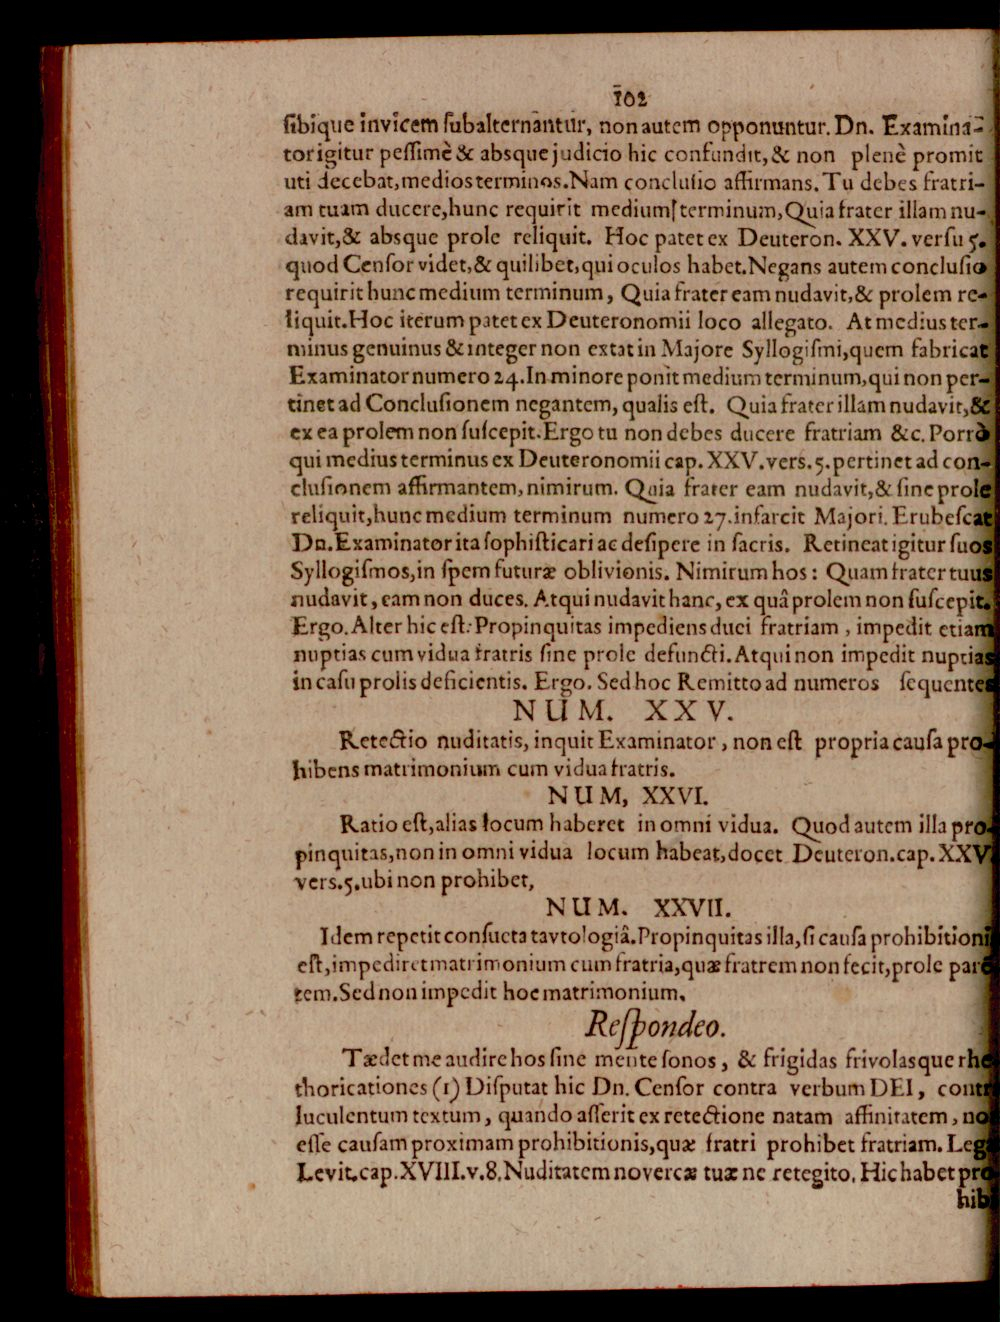 102
ſibique invicem ſubalternantur, non autem opponuntur. Dn. Examina-
tor igitur peſſimè & absque judicio hic confundit, & non plenè promit
uti decebat, medios terminos. Nam concluſio affirmans. Tu debes fratri-
am tuam ducere, hunc requirit medium terminum, Quia frater illam nu-
davit, & absque prole reliquit. Hoc patet ex Deuteron. XXV. verſu 5.
quod Cenſor videt, & quilibet, qui oculos habet. Negans autem concluſio
requirit hunc medium terminum, Quia frater eam nudavit, & prolem re-
liquit. Hoc iterum patet ex Deuteronomii loco allegato. At medius ter-
minus genuinus & integer non extat in Majore Syllogiſmi, quem fabricat
Examinator numero 24. In minore ponit medium terminum, qui non per-
tinet ad Concluſionem negantem, qualis eſt. Quia frater illam nudavit, &
ex ea prolem non ſuſcepit. Ergo tu non debes ducere fratriam &c. Porrò
qui medius terminus ex Deuteronomii cap. XXV. vers. 5. pertinet ad con-
cluſionem affirmantem, nimirum. Quia frater eam nudavit, & ſine prole
reliquit, hunc medium terminum numero 27. infarcit Majori. Erubeſcat
Dn. Examinator ita ſophiſticari ac deſipere in ſacris. Retineat igitur ſuos
Syllogiſmos, in ſpem futuræ oblivionis. Nimirum hos: Quam frater tuus
nudavit, eam non duces. Atqui nudavit hanc, ex quâ prolem non ſuſcepit.
Ergo. Alter hic eſt: Propinquitas impediens duci fratriam, impedit etiam
nuptias cum vidua fratris ſine prole defuncti. Atqui non impedit nuptias
in caſu prolis deficientis. Ergo. Sed hoc Remitto ad numeros ſequentes
NUM. XXV.
Retectio nuditatis, inquit Examinator, non eſt propria cauſa pro-
hibens matrimonium cum vidua fratris.
NUM, XXVI.
Ratio eſt, alias locum haberet in omni vidua. Quod autem illa pro-
pinquitas, non in omni vidua locum habeat, docet Deuteron. cap. XXV
vers. 5. ubi non prohibet,
NUM. XXVII.
Idem repetit conſueta tavtologiâ. Propinquitas illa, ſi cauſa prohibitioni
eſt, impediret matrimonium cum fratria, quæ fratrem non fecit, prole pare
tem. Sed non impedit hoc matrimonium.
Reſpondeo.
Tædet me audire hos ſine mente ſonos, & frigidas frivolasque rhe
thoricationes (1) Diſputat hic Dn. Cenſor contra verbum DEI, contr
luculentum textum, quando aſſerit ex retectione natam affinitatem, no
eſſe cauſam proximam prohibitionis, quæ fratri prohibet fratriam. Leg
Levit. cap. XVIII. v. 8. Nuditatem novercæ tuæ ne retegito. Hic habet pro
hib